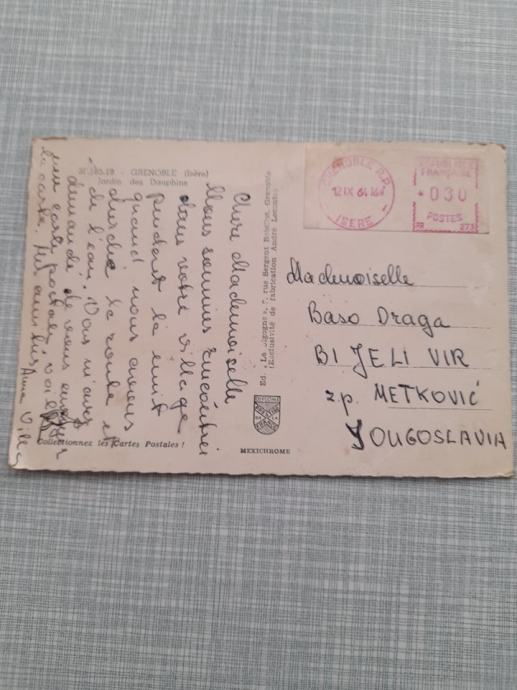 38.185.18 - GRENOBLE (Isère)
Jardin des Dauphins
Chère Mademoiselle
Nous sommes
dans votre village
pendant la nuit
quand nous avons
cherché la route et
de l'eau. Vous m'avez
demandé de vous
une carte postale, voilà
la carte. Anna
Collectionnez les Cartes Postales !
Ed. "La Cigogne", 7, rue Sergent Bobillot, Grenoble
(Exclusivité de fabrication André Leconte)
MEXICHROME
GRENOBLE R.P.
12 IX 64
ISERE
REPUBLIQUE
FRANÇAISE
0 30
POSTES
Mademoiselle
Baso Draga
BIJELI VIR
z.p. METKOVIĆ
JOUGOSLAVIA